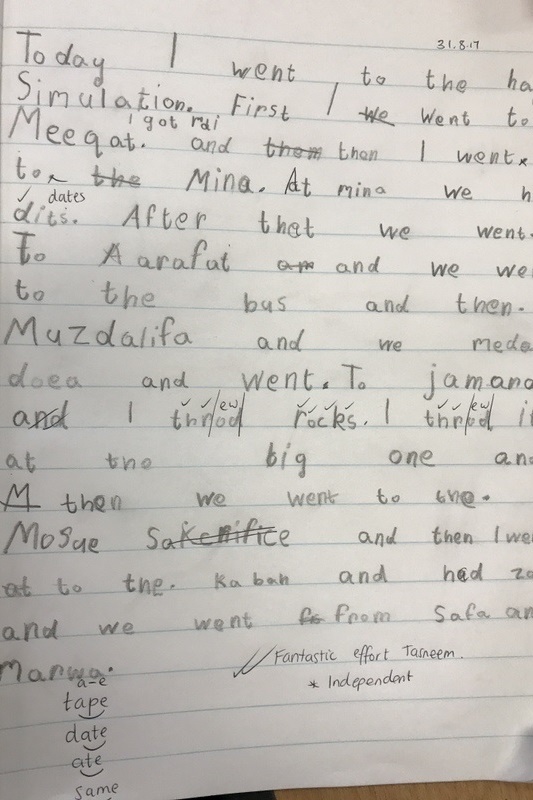 31.8.17
Today I went to the ha
Simulation. First I we went to
i got rdi
Meeqat. and them then I went
to the Mina. At mina we h
dates
dits. After that we went.
To Aarafat am and we we
to the bus and then.
Muzdalifa and we meda
doea and went. To jamano
ew ew
and I throd rocks. I throd i
at the big one an
M then we went to the.
Mosqe Sakerifice and then I we
at to the. Kabah and had zo
and we went fr from Safa an
Marwa.
Fantastic effort Tasneem.
* Independent
a-e
tape
date
ate
same